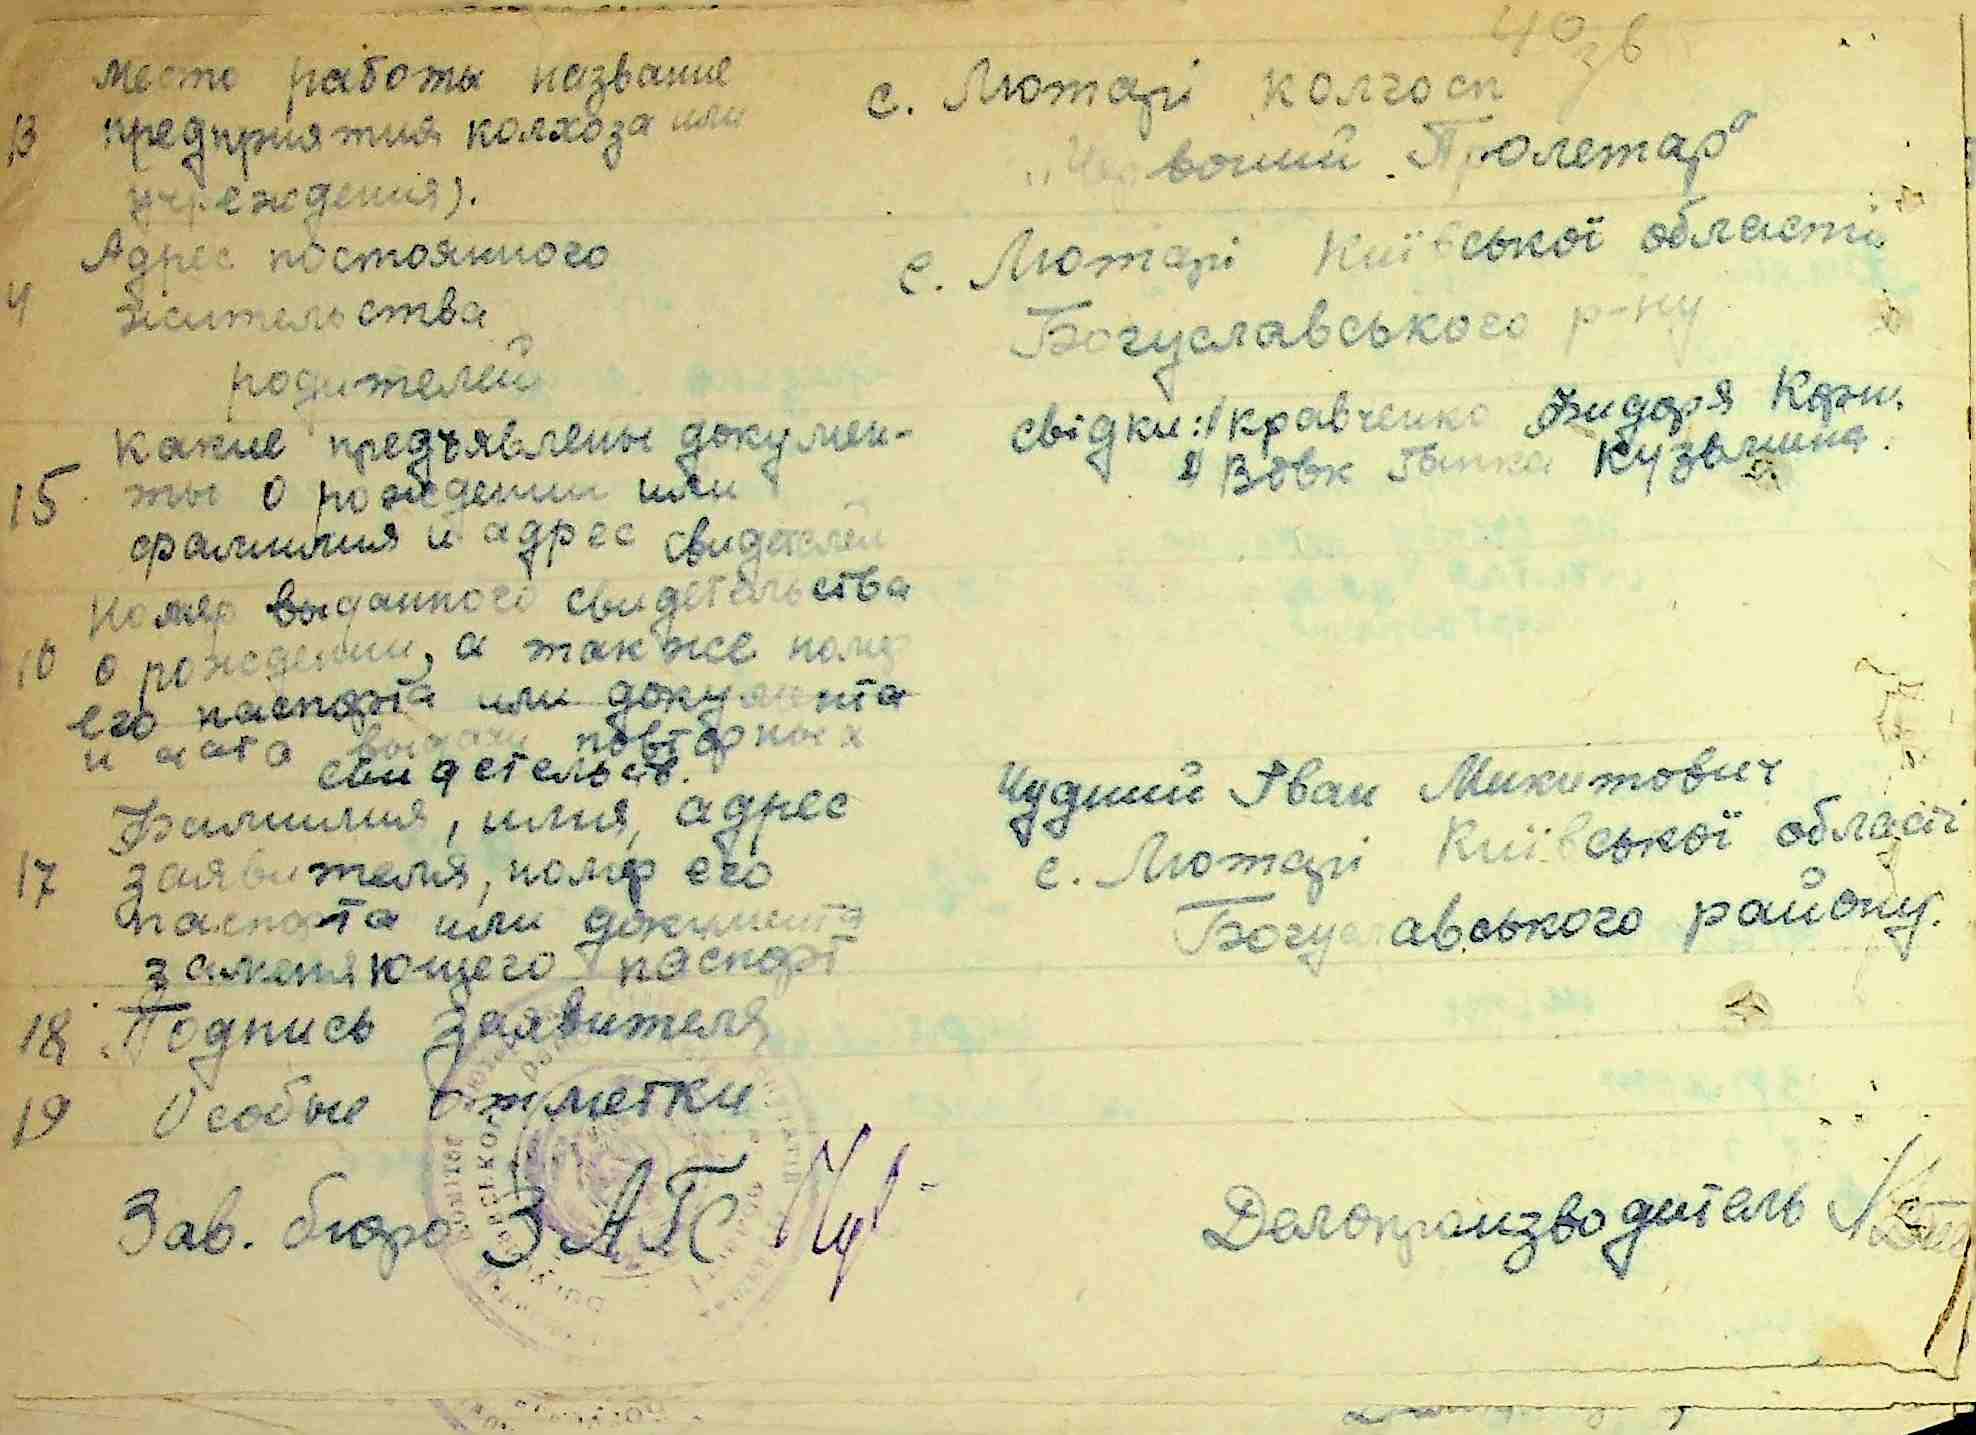 40 зв
место работы название
с. Лютарі колгосп
13 предприятия колхоза или
„Червоний Пролетар"
учреждения).
Адрес постоянного
с. Лютарі Київської области
4 жительства
Богуславського р-ну
родителей
Какие предъявлены докумен-
свідки: 1/ Кравченко Фидоря Корн.
15 ты о рождении или
2) Вовк Кузьмина.
фамилия и адрес свидетелей
Номер выданного свидетельства
10 о рождении, а также номер
его паспорта или документа
и дата выдачи повторных
свидетельств.
Чудний Іван Микитович
Фамилия, имя, адрес
с. Лютарі Київської області
17 заявителя, номер его
Богуславського району.
паспорта или документа
заменяющего паспорт
18 Подпись заявителя
19 Особые отметки
Зав. бюро ЗАГС
Делопроизводитель